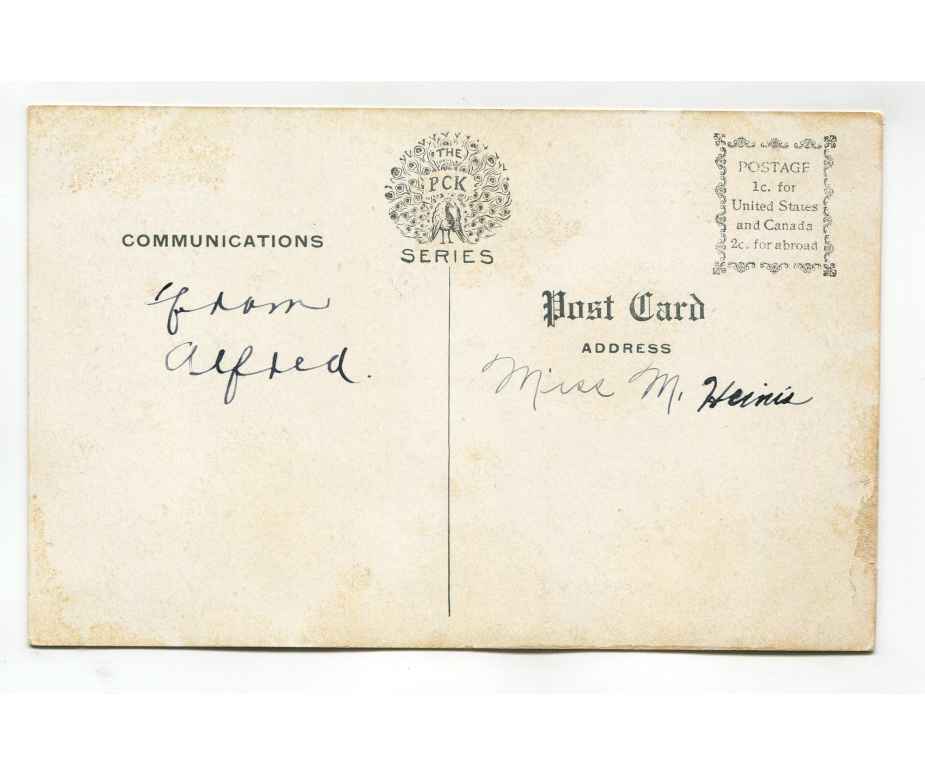 THE
PCK
SERIES
POSTAGE
1c. for
United States
and Canada
2c. for abroad
COMMUNICATIONS
From
Alfred.
Post Card
ADDRESS
Miss M. Heinis